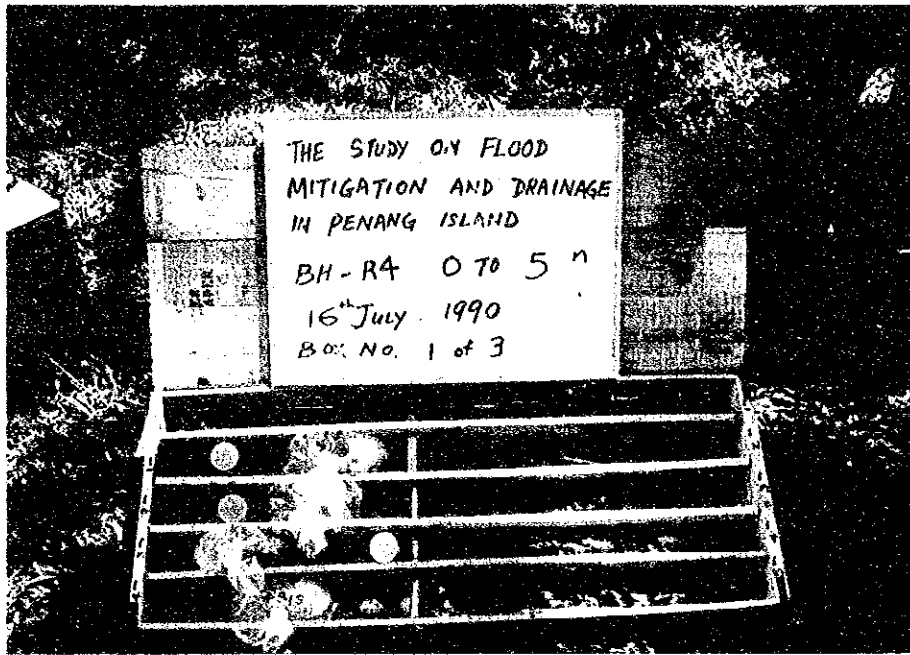 THE STUDY ON FLOOD
MITIGATION AND DRAINAGE
IN PENANG ISLAND
BH-R4 0 TO 5 m
16th July 1990
BOX NO. 1 of 3